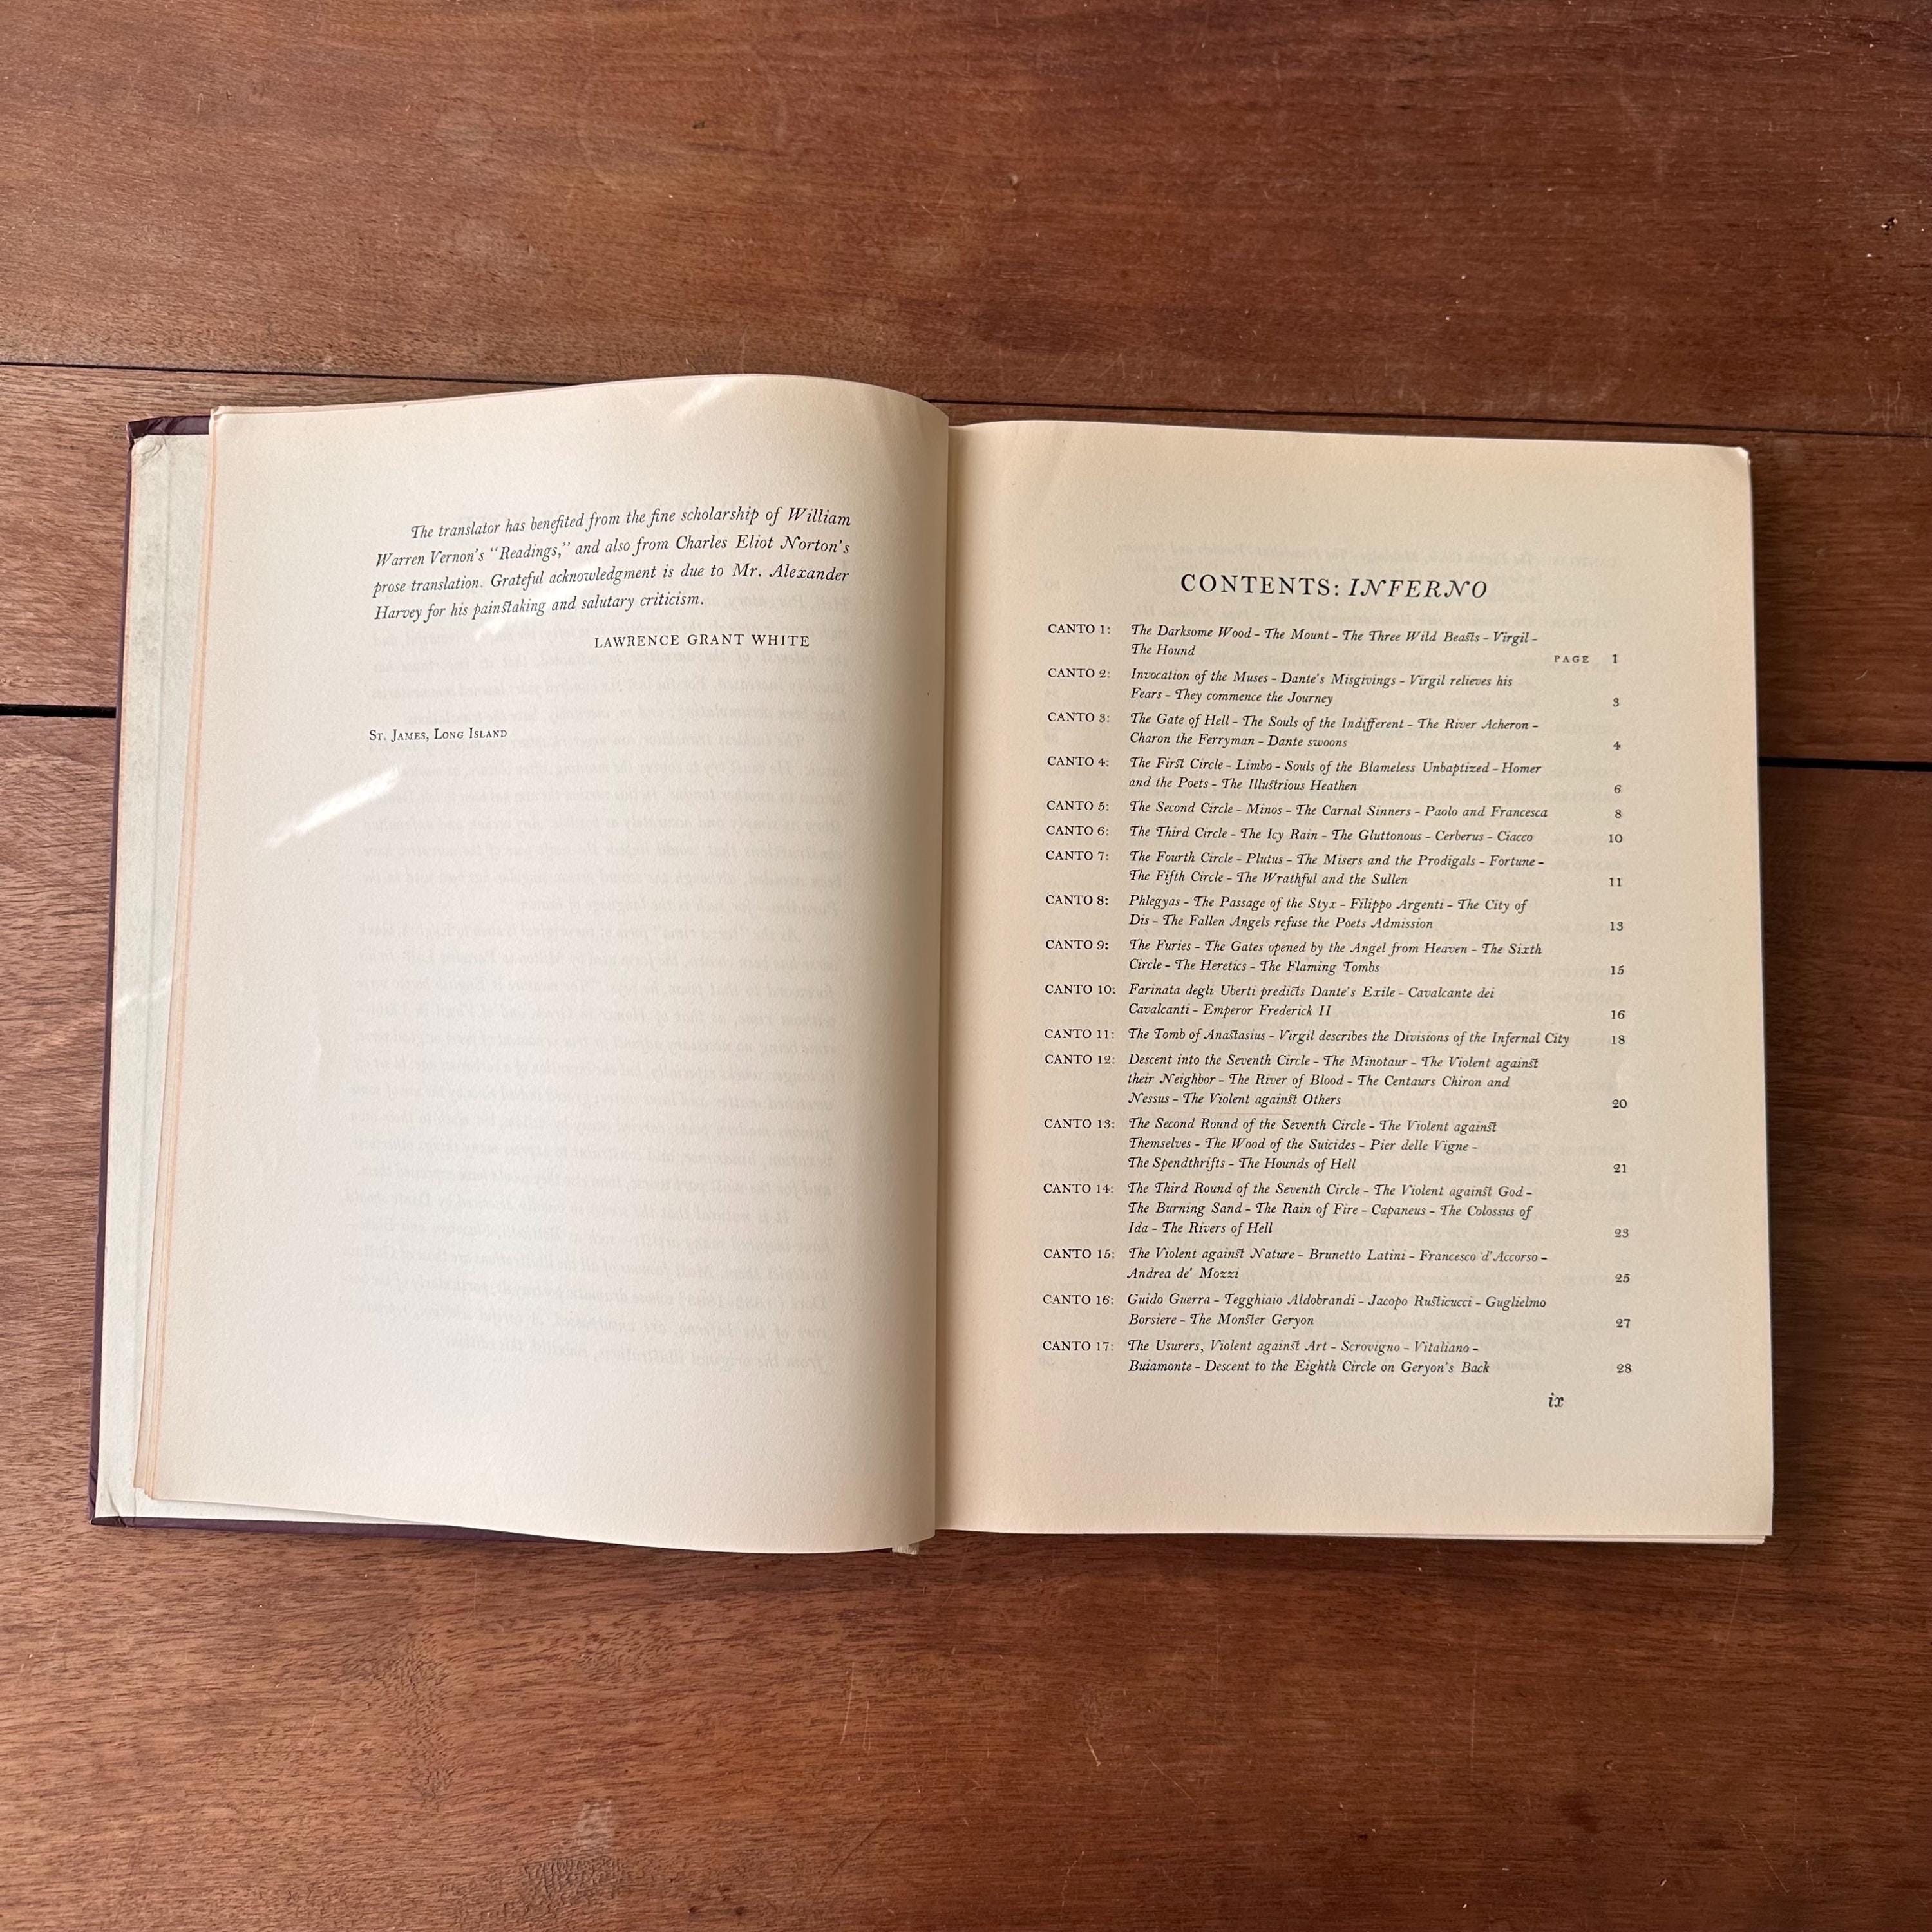 The translator has benefited from the fine scholarship of William
Warren Vernon's "Readings," and also from Charles Eliot Norton's
prose translation. Grateful acknowledgment is due to Mr. Alexander
Harvey for his painstaking and salutary criticism.
LAWRENCE GRANT WHITE
ST. JAMES, LONG ISLAND
CONTENTS: INFERNO
CANTO 1: The Darksome Wood - The Mount - The Three Wild Beasts - Virgil -
The Hound PAGE 1
CANTO 2: Invocation of the Muses - Dante's Misgivings - Virgil relieves his
Fears - They commence the Journey 3
CANTO 3: The Gate of Hell - The Souls of the Indifferent - The River Acheron -
Charon the Ferryman - Dante swoons 4
CANTO 4: The First Circle - Limbo - Souls of the Blameless Unbaptized - Homer
and the Poets - The Illustrious Heathen 6
CANTO 5: The Second Circle - Minos - The Carnal Sinners - Paolo and Francesca 8
CANTO 6: The Third Circle - The Icy Rain - The Gluttonous - Cerberus - Ciacco 10
CANTO 7: The Fourth Circle - Plutus - The Misers and the Prodigals - Fortune -
The Fifth Circle - The Wrathful and the Sullen 11
CANTO 8: Phlegyas - The Passage of the Styx - Filippo Argenti - The City of
Dis - The Fallen Angels refuse the Poets Admission 13
CANTO 9: The Furies - The Gates opened by the Angel from Heaven - The Sixth
Circle - The Heretics - The Flaming Tombs 15
CANTO 10: Farinata degli Uberti predicts Dante's Exile - Cavalcante dei
Cavalcanti - Emperor Frederick II 16
CANTO 11: The Tomb of Anastasius - Virgil describes the Divisions of the Infernal City 18
CANTO 12: Descent into the Seventh Circle - The Minotaur - The Violent against
their Neighbor - The River of Blood - The Centaurs Chiron and
Nessus - The Violent against Others 20
CANTO 13: The Second Round of the Seventh Circle - The Violent against
Themselves - The Wood of the Suicides - Pier delle Vigne -
The Spendthrifts - The Hounds of Hell 21
CANTO 14: The Third Round of the Seventh Circle - The Violent against God -
The Burning Sand - The Rain of Fire - Capaneus - The Colossus of
Ida - The Rivers of Hell 23
CANTO 15: The Violent against Nature - Brunetto Latini - Francesco d'Accorso -
Andrea de' Mozzi 25
CANTO 16: Guido Guerra - Tegghiaio Aldobrandi - Jacopo Rusticucci - Guglielmo
Borsiere - The Monster Geryon 27
CANTO 17: The Usurers, Violent against Art - Scrovigno - Vitaliano -
Buiamonte - Descent to the Eighth Circle on Geryon's Back 28
ix